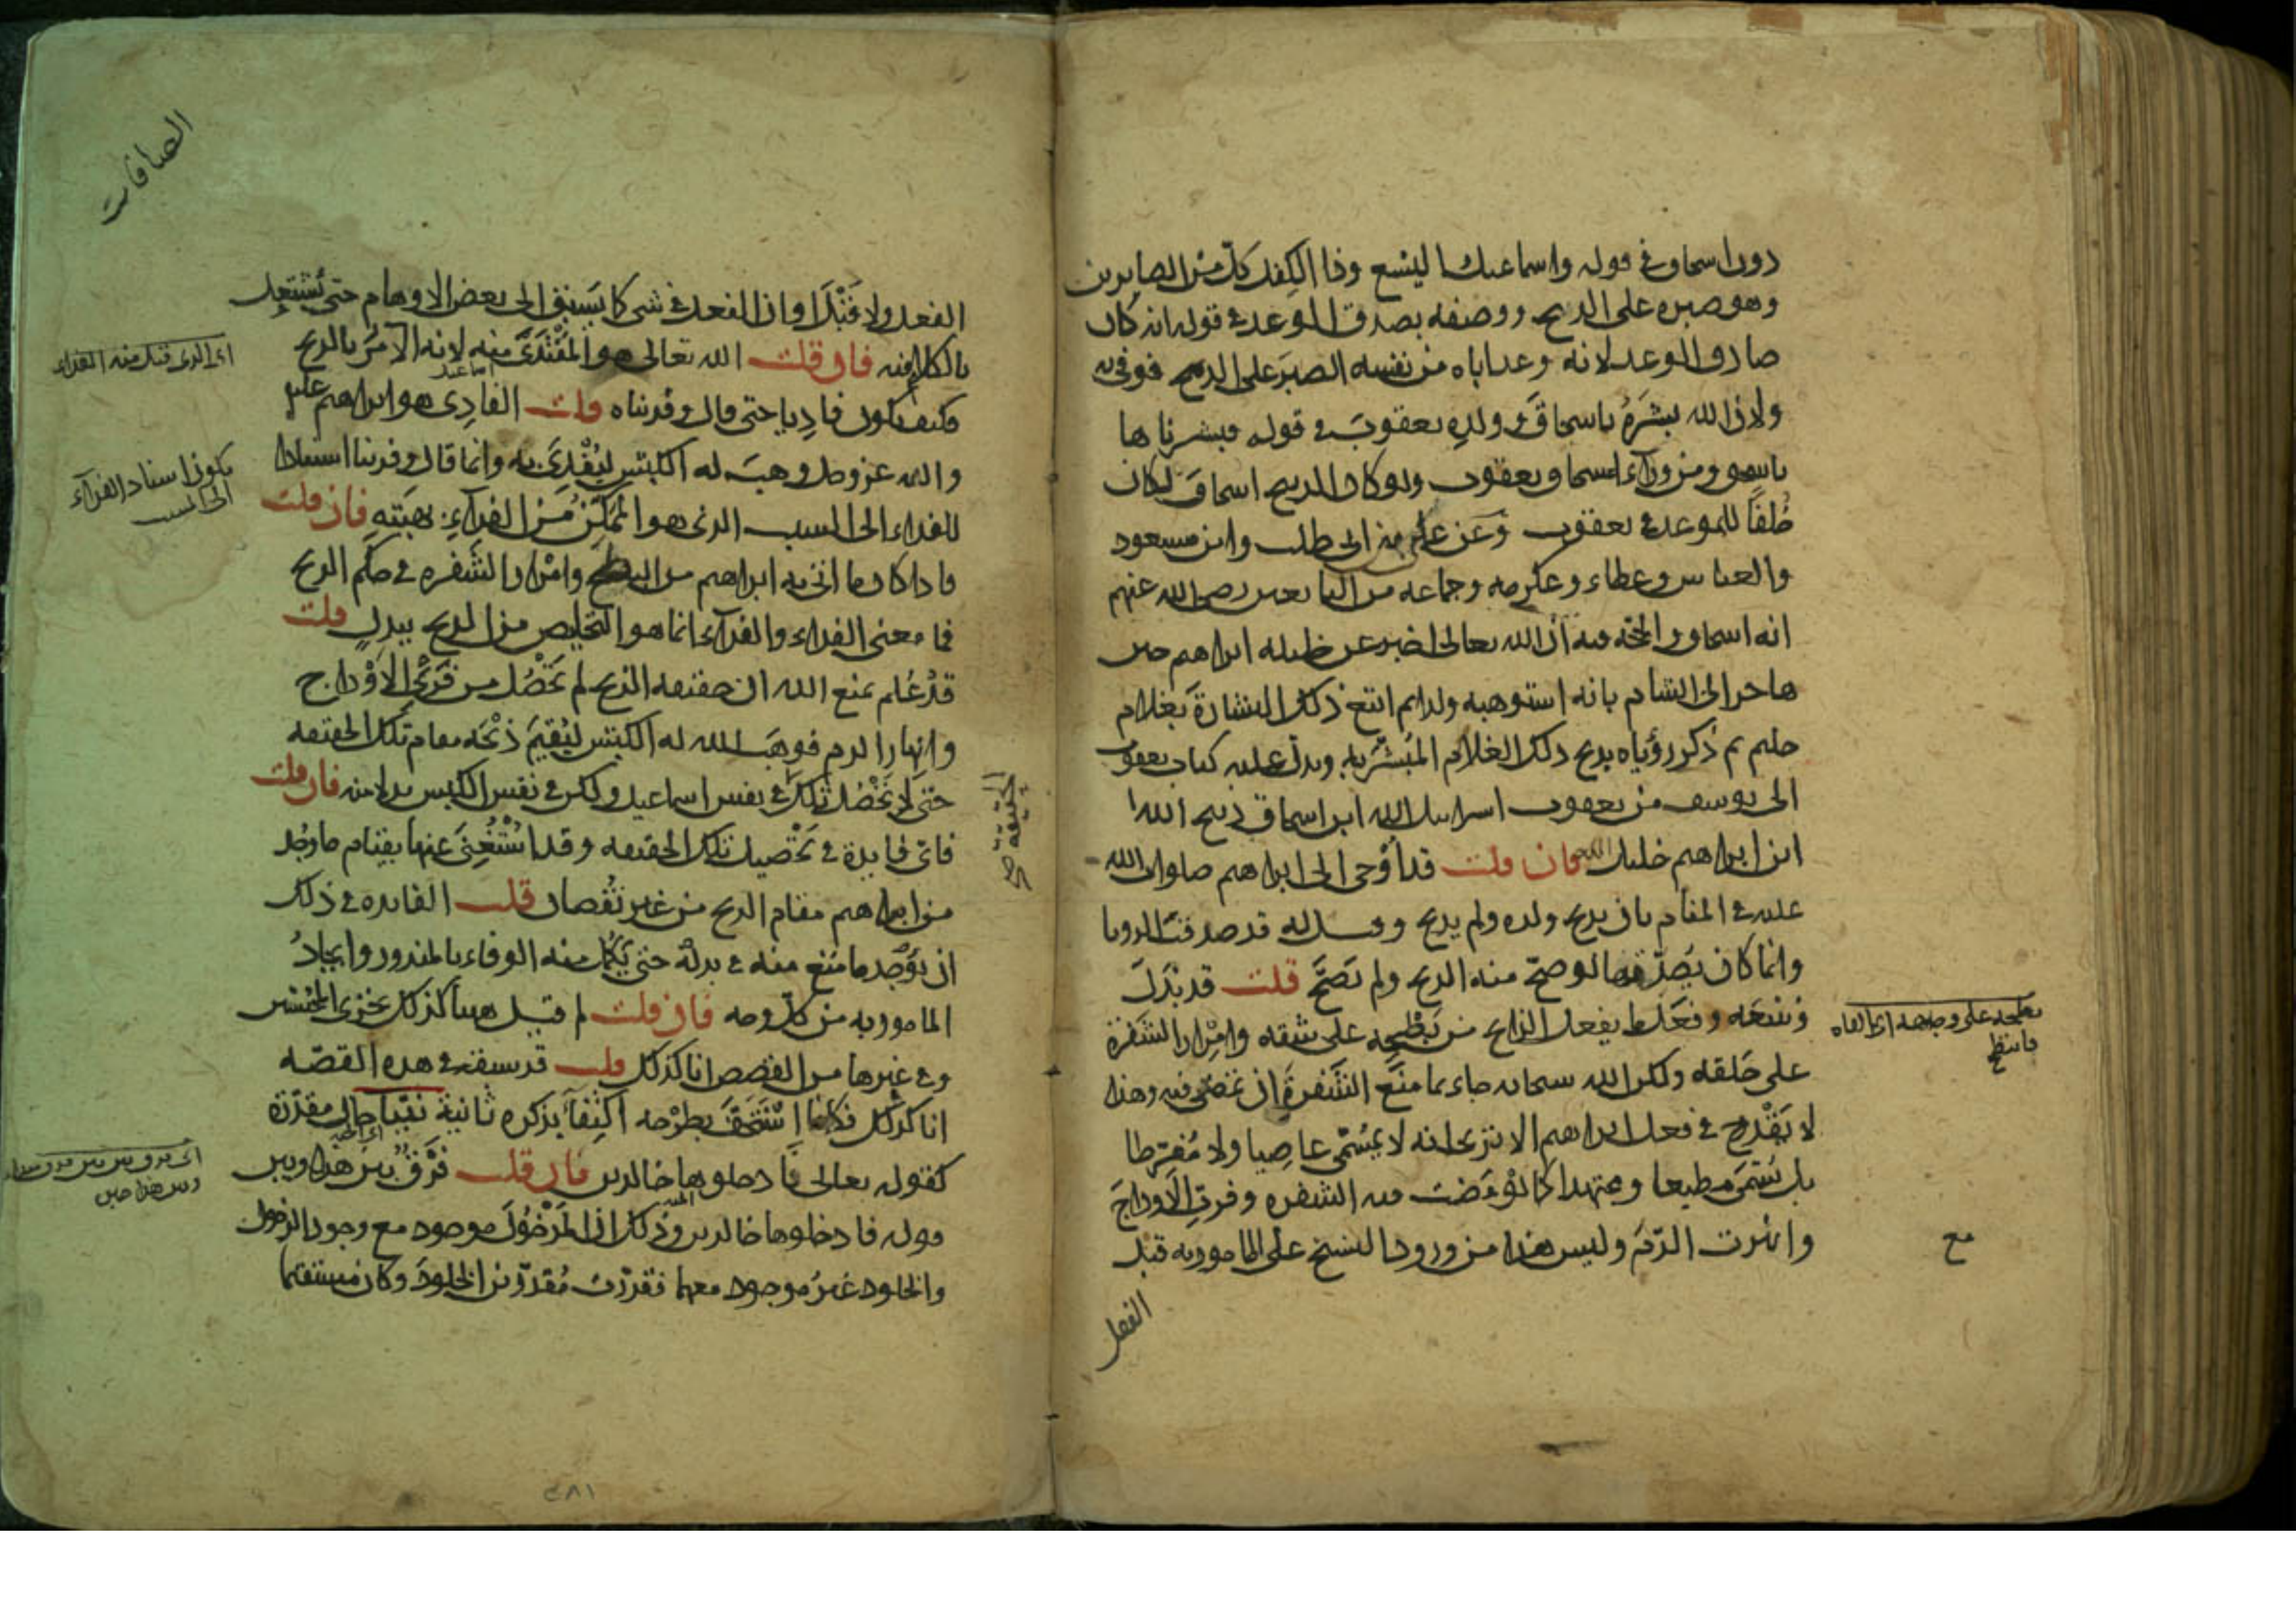 دون اسحاق في قوله واسماعيل واليسع وذا الكفل كل من الصابرين
وهو صبره على الذبح ووصفه بصدق الوعد في قوله انه كان
صادق الوعد لانه وعد اباه من نفسه الصبر على الذبح فوفى به
ولان الله بشره باسحاق وولده يعقوب في قوله فبشرناها
باسحق ومن وراء اسحاق يعقوب ولو كان الذبيح اسحاق لكان
خلفا للموعد في يعقوب وعن علي بن ابى طالب وابن مسعود
والعباس وعطاء وعكرمه وجماعه من التابعين رضى الله عنهم
انه اسحاق والحجة فيه ان الله تعالى اخبر عن خليله ابراهيم حين
هاجر الى الشام بانه استوهبه ولدا ثم اتبع ذلك البشارة بغلام
حليم ثم ذكر رؤياه بذبح ذلك الغلام المبشر به ويدل عليه كتاب يعقوب
الى يوسف من يعقوب اسرايل الله ابن اسحاق ذبيح الله
ابن ابراهيم خليل الله فان قلت قد أوحى الى ابراهيم صلوات الله
عليه في المنام بان يذبح ولده ولم يذبح وقيل له قد صدقت الرويا
وانما كان يصدقها لو صح منه الذبح ولم يصح قلت قد بذل
وسعه وفعل ما يفعل الذابح من بطحه على شقه وامرار الشفرة
على حلقه ولكن الله سبحانه جاء بما منع الشفرة ان تمضى فيه وهذا
لا يقدح في فعل ابراهيم الا ترى انه لا يسمى عاصيا ولا مفرطا
بل يسمى مطيعا ومجتهدا كما لو مضت فيه الشفره وفرت الاوداج
وانهرت الدم وليس هذا من ورود النسخ على المامور به قبل
الفعل
بطحه على وجهه اى القاه
فانبطح
الصافات
الفعل ولا قبل اوان الفعل في شى كما يسبق الى بعض الاوهام حتى يشتغل
بالكلام فيه فان قلت الله تعالى هو المفتدى منه لانه الآمر بالذبح
فكيف يكون فاديا حتى قال وفديناه قلت الفادى هو ابراهيم عليه
والله عز وجل وهب له الكبش ليفدى به وانما قال وفديناه اسنادا
للفداء الى السبب الذى هو الممكن من الفداء بهبته فان قلت
فاذا كان ما اتى به ابراهيم من البطح وامرار الشفره في حكم الذبح
فما معنى الفداء والفداء انما هو التخليص من الذبح ببدل قلت
قد علم بمنع الله ان حقيقه الذبح لم تحصل من فرى الاوداج
وانهار الدم فوهب الله له الكبش ليقيم ذبحه مقام تلك الحقيقه
حتى لا تحصل تلك في نفس اسماعيل ولكن في نفس الكبش بدلا منه فان قلت
فاى فايدة في تحصيل تلك الحقيقه وقد استغنى عنها بقيام ما وجد
من ابراهيم مقام الذبح من غير نقصان قلت الفايده في ذلك
ان يوجد ما منع منه في بدله حتى يكمل منه الوفاء بالمنذور وايجاد
المامور به من كل وجه فان قلت لم قيل هاهنا كذلك نجزى المحسنين
وفي غيرها من القصص انا كذلك قلت قد سبقه في هذه القصه
انا كذلك فكانما استخف بطرحه اكتفاء بذكره ثانية نبيا حال مقدرة
كقوله تعالى فادخلوها خالدين فان قلت فرق بين هذا وبين
قوله فادخلوها خالدين وذلك ان المدخول موجود مع وجود الدخول
والخلود غير موجود معهما فقدرت مقدرين الخلود وكان مستقيما
اى الذى قبل منه الفداء
يكون اسناد الفداء
الى السبب
الحقيقة صح